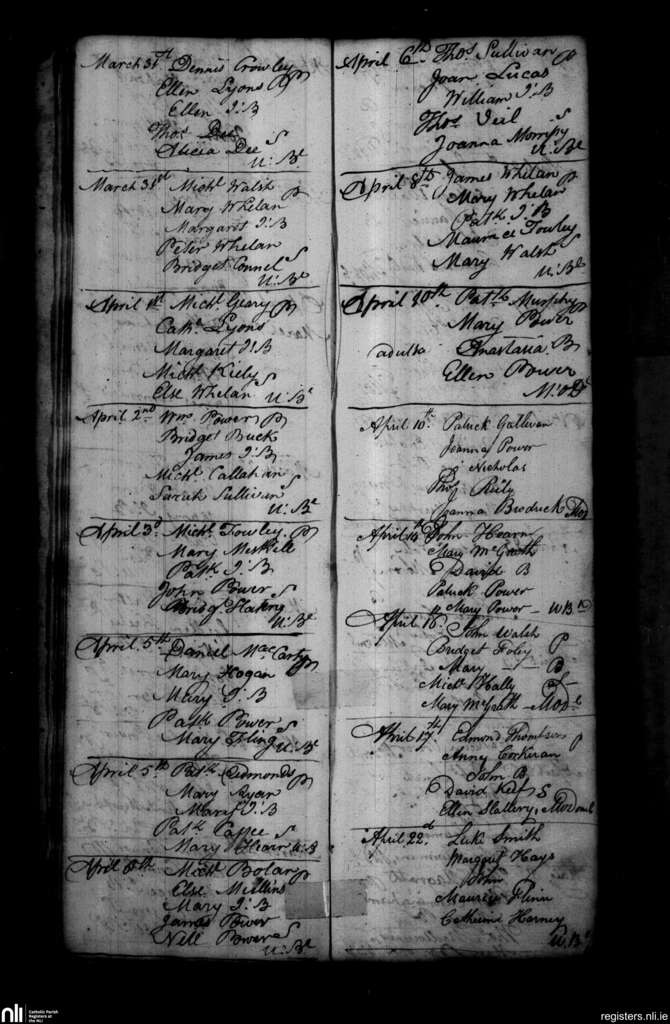 March 31st Dennis Crowley
Ellen Lyons P
Ellen I:B
Thos Dee
Alicia Dee S
U:Be
March 31st Michl Walsh
Mary Whelan P
Margaret I:B
Peter Whelan
Bridget Connel S
U:Be
April 1st Michl Geary P
Cathe Lyons
Margaret I:B
Michl Kiely
Else Whelan S
U:Be
April 2nd Wm Power P
Bridget Buck
James I:B
Michl Callahan
Sarah Sullivan S
U:Be
April 3d Michl Towley P
Mary Meskell
Patk I:B
John Power S
Bridgt
U:Be
April 5th Daniel McCarty P
Mary Hogan
Mary I:B
Patk Power S
Mary
U:Be
April 5th Patk Edmonds
Mary Ryan P
Mary I:B
Patk S
Mary U:B
April 6th Michl P
Else Mullins
Mary I:B
James Power
Nell Power S
U:Be
April 6th Thos Sullivan P
Joan Lucas
William I:B
Thos Veil S
Joanna Morrisy
U:Be
April 8th James Whelan
Mary Whelan P
Patk I:B
Maurice Towley
Mary Walsh S
U:Be
April 10th Patk Murphy
Mary Power P
adulta Anastatia B
Ellen Power
M:OD
April 10th Patuck Gallivan
Joanna Power
Nicholas
Thos Reily
Joanna Broduck Mod
April 14th John Hearn
Mary McGrath
David B
Patuck Power
Mary Power - W B
April 16 John Walsh
Bridget Foley P
Mary - B
Michl Hally S
Mary McGrath - Mod
April 17th Edmond Thompson P
Anny Corkeran
John B
David S
Ellen Slattery, Mo
April 22d Luke Smith
Margret Hays
John
Maurice Flinn
Catherine Harney
W.B
nli
Catholic Parish
Registers at
the NLI
registers.nli.ie